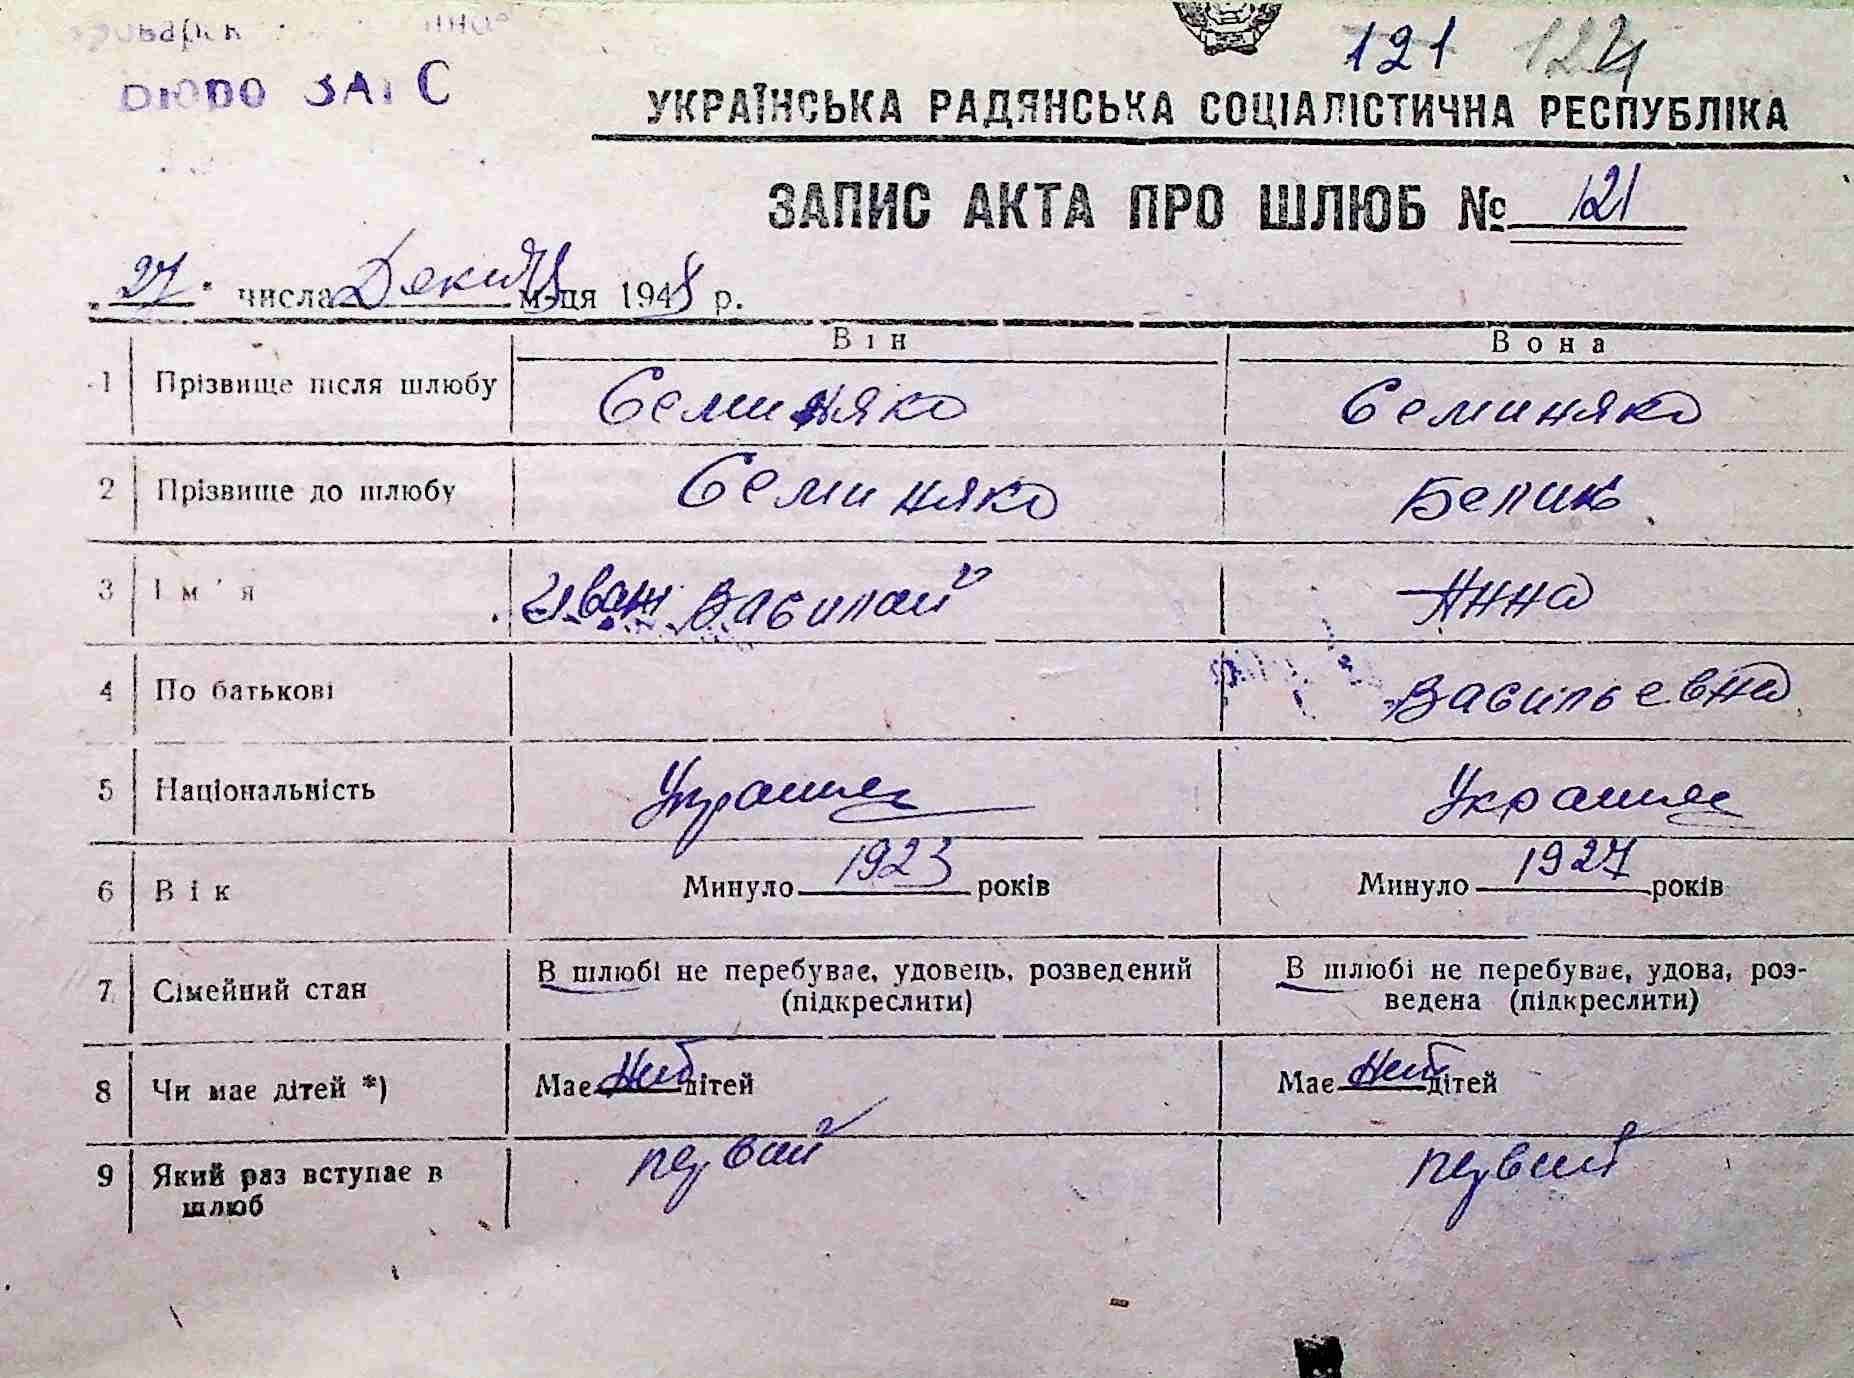 БЮРО ЗАГС
121 124
УКРАЇНСЬКА РАДЯНСЬКА СОЦІАЛІСТИЧНА РЕСПУБЛІКА
ЗАПИС АКТА ПРО ШЛЮБ № 121
„27" числа м-ця 1948 р.
Він Вона
1 Прізвище після шлюбу Семиняко Семиняко
2 Прізвище до шлюбу Семиняко Белик
3 Ім'я Иван Василий Анна
4 По батькові Васильевна
5 Національність
6 Вік Минуло 1923 років Минуло 1927 років
7 Сімейний стан В шлюбі не перебуває, удовець, розведений В шлюбі не перебуває, удова, роз-
(підкреслити) ведена (підкреслити)
8 Чи має дітей *) Має нет дітей Має нет дітей
9 Який раз вступає в первий первий
шлюб